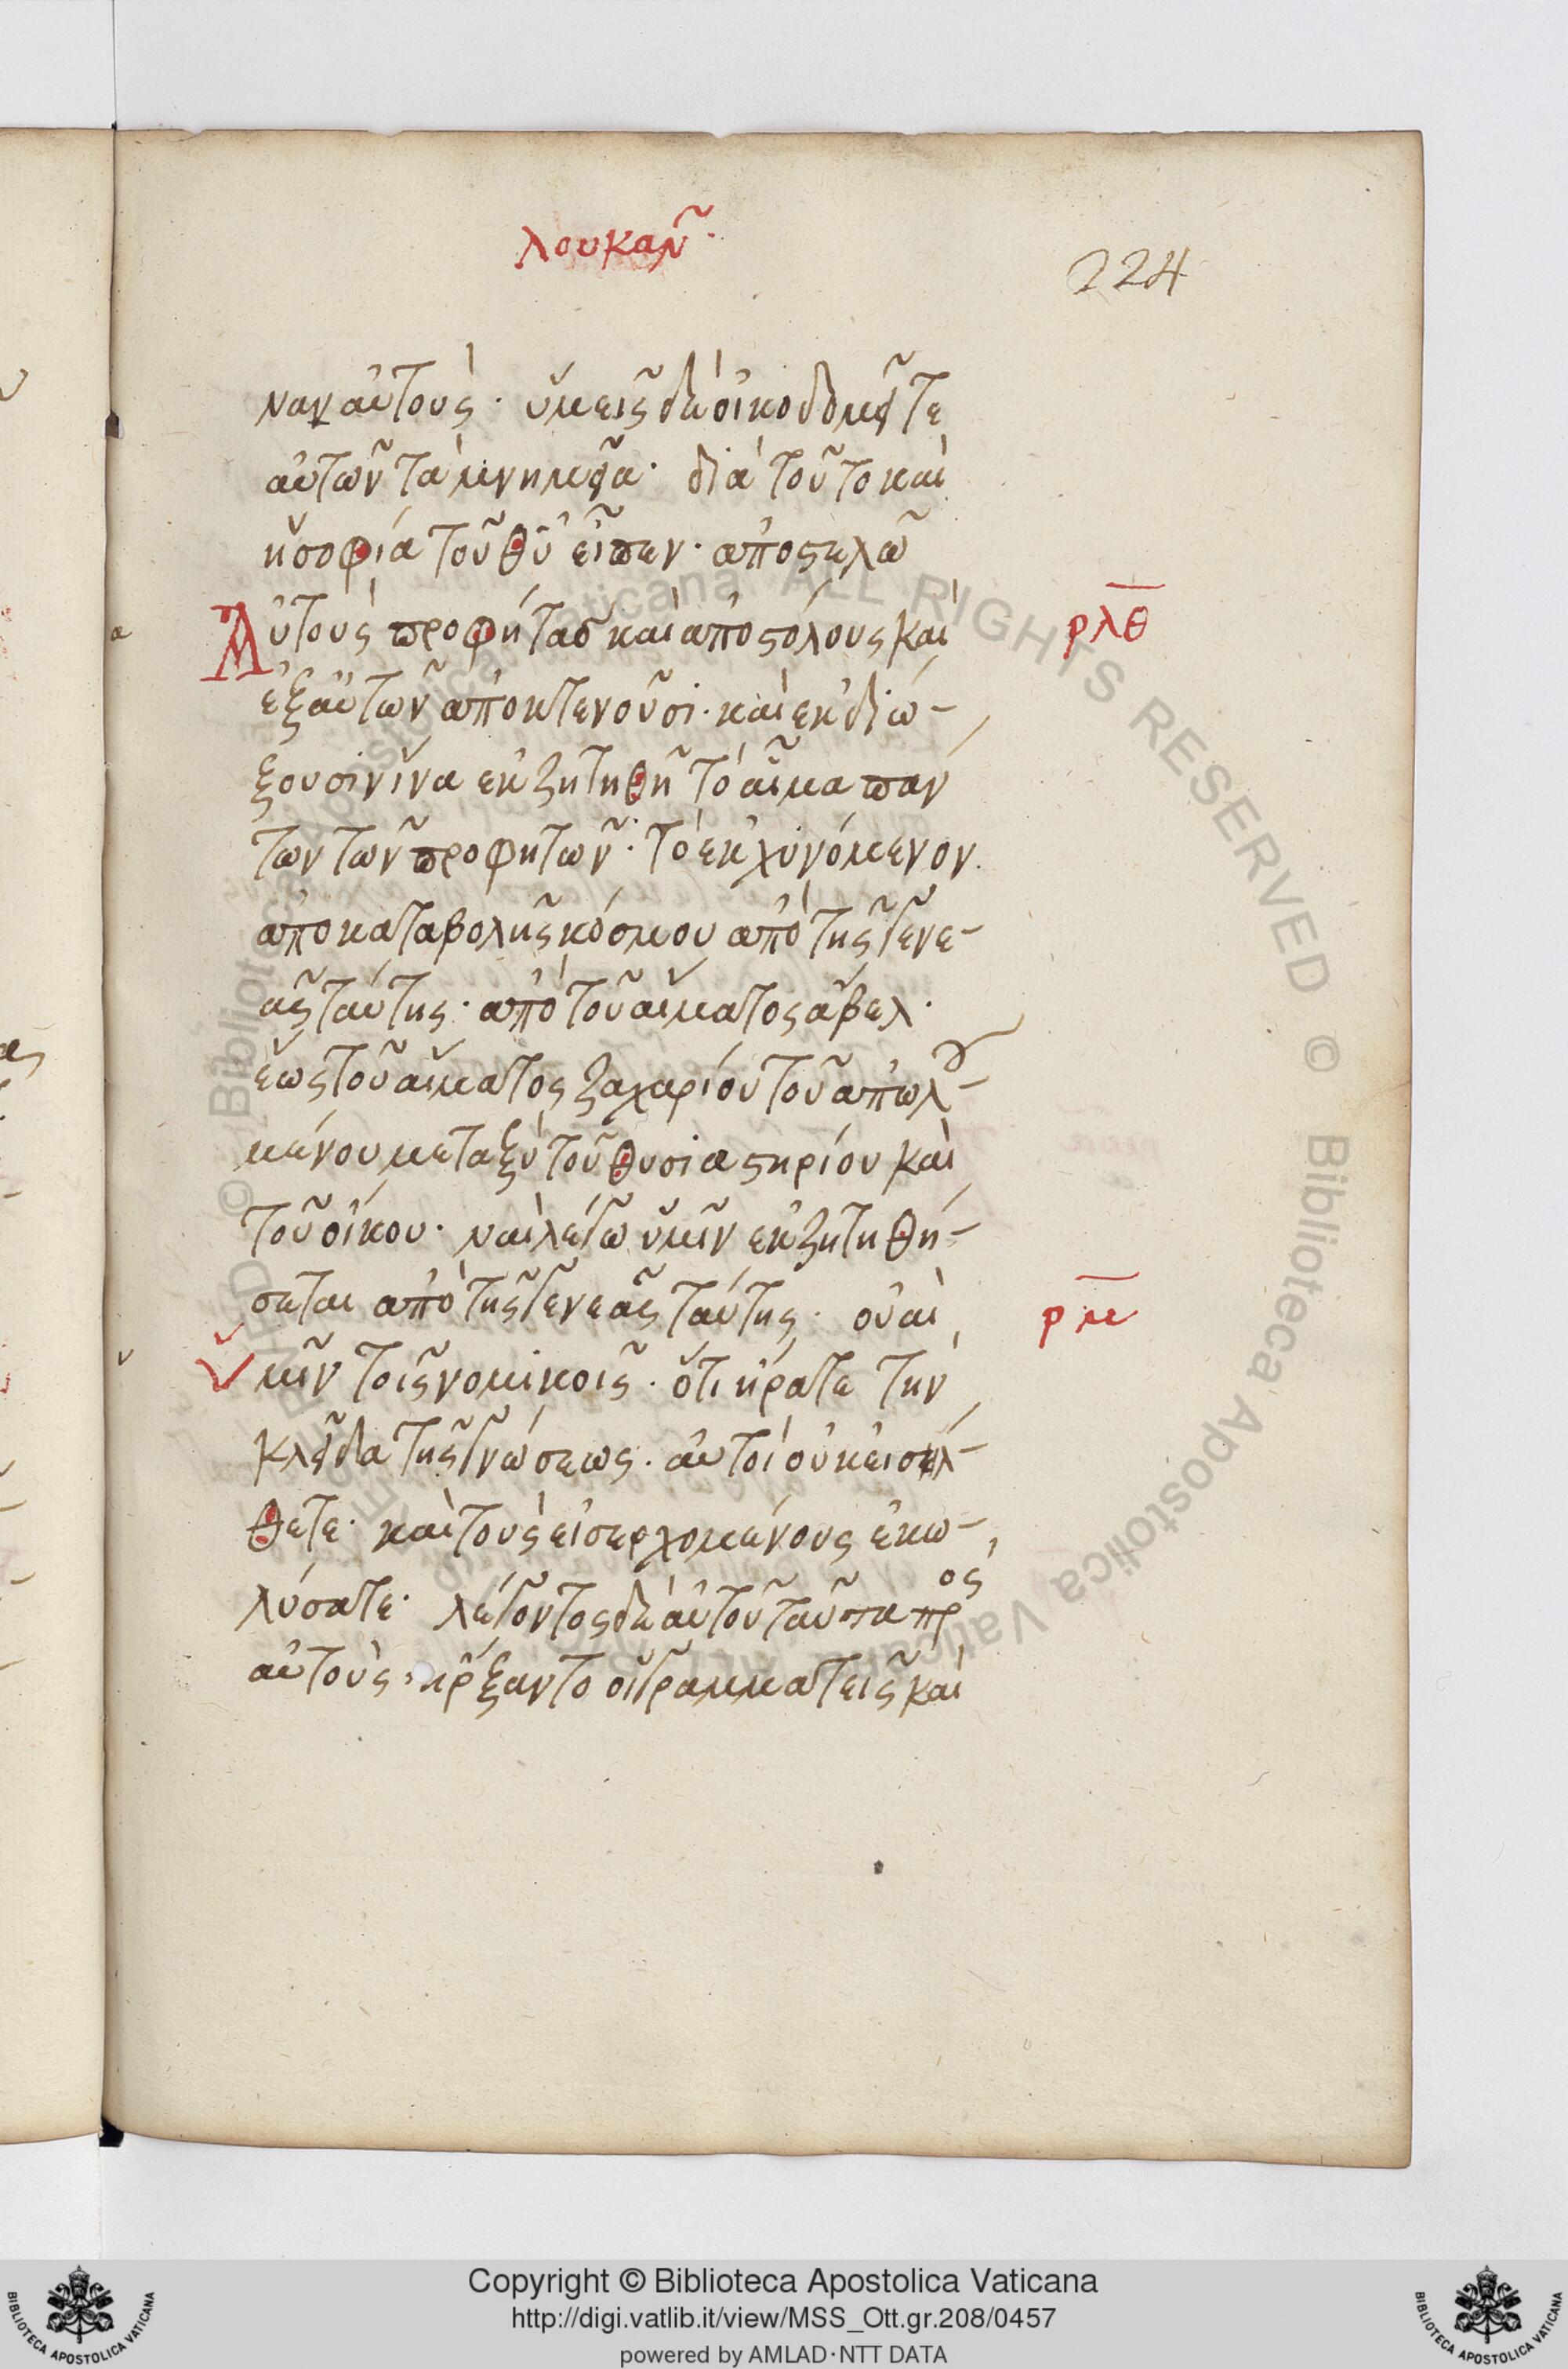 λουκαν
224
ναν αὐτοὺς· ὑμεῖς δὲ οἰκοδομεῖτε
αὐτῶν τὰ μνημεῖα· διὰ τοῦτο καὶ
ἡ σοφία τοῦ θῦ εἶπεν· ἀποστελῶ
Αὐτοὺς προφήτας καὶ ἀποστόλους καὶ
ρλθ
ἐξ αὐτῶν ἀποκτενοῦσι· καὶ ἐκδιώ-
ξουσιν ἵνα ἐκζητηθῆ τὸ αἷμα πάν
των τῶν προφητῶν· τὸ ἐκχυνόμενον
ἀπο καταβολῆς κόσμου ἀπὸ τῆς γενε-
ᾶς ταύτης· ἀπὸ τοῦ αἵματος ἄβελ·
ἕως τοῦ αἵματος ζαχαρίου τοῦ ἀπωλ-
μένου μεταξὺ τοῦ θυσιαστηρίου καὶ
τοῦ οἴκου· ναὶ λέγω ὑμῖν ἐκζητηθή-
σεται ἀπὸ τῆς γενεᾶς ταύτης· οὐαὶ
ρμ
ὑμῖν τοῖς νομικοῖς· ὅτι ἤρατε τὴν
κλεῖδα τῆς γνώσεως· αὐτοὶ οὐκ εἰσήλ-
θετε· καὶ τοὺς εἰσερχομένους ἐκω-
λύσατε· λέγοντος δὲ αὐτοῦ ταῦτα προς
αὐτοὺς· ἤρξαντο οἱ γραμματεῖς καὶ
© Biblioteca Apostolica Vaticana ALL RIGHTS RESERVED
Copyright © Biblioteca Apostolica Vaticana
http://digi.vatlib.it/view/MSS_Ott.gr.208/0457
powered by AMLAD·NTT DATA
BIBLIOTECA APOSTOLICA VATICANA
BIBLIOTECA APOSTOLICA VATICANA